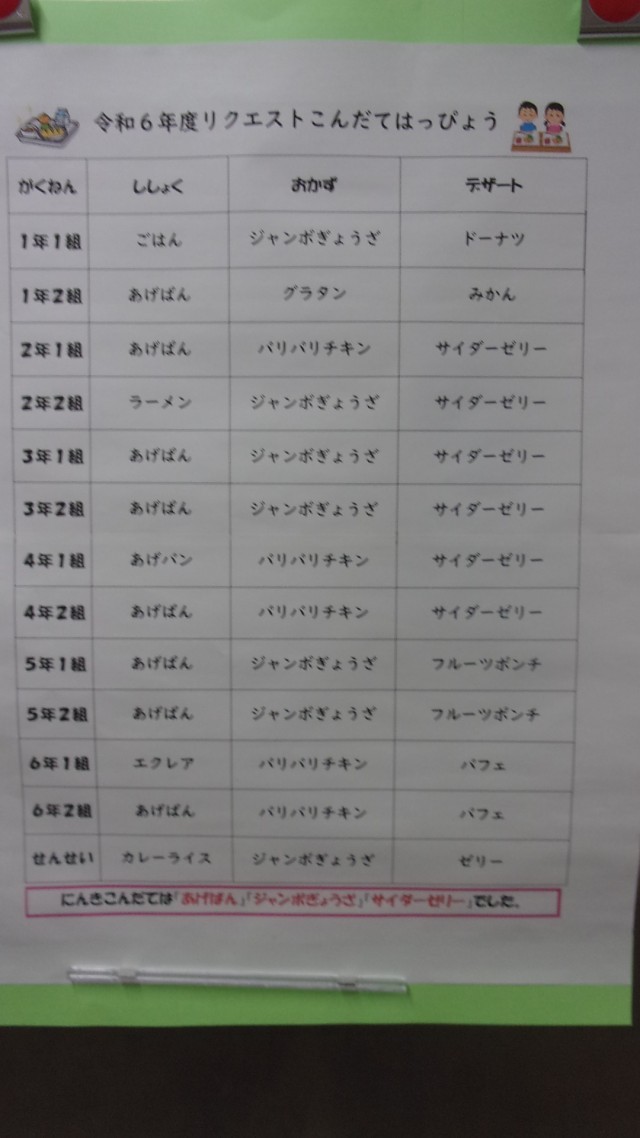 令和6年度リクエストこんだてはっぴょう
がくねん ししょく おかず デザート
1年1組 ごはん ジャンボぎょうざ ドーナツ
1年2組 あげぱん グラタン みかん
2年1組 あげぱん パリパリチキン サイダーゼリー
2年2組 ラーメン ジャンボぎょうざ サイダーゼリー
3年1組 あげぱん ジャンボぎょうざ サイダーゼリー
3年2組 あげぱん ジャンボぎょうざ サイダーゼリー
4年1組 あげパン パリパリチキン サイダーゼリー
4年2組 あげぱん パリパリチキン サイダーゼリー
5年1組 あげぱん ジャンボぎょうざ フルーツポンチ
5年2組 あげぱん ジャンボぎょうざ フルーツポンチ
6年1組 エクレア パリパリチキン パフェ
6年2組 あげぱん パリパリチキン パフェ
せんせい カレーライス ジャンボぎょうざ ゼリー
にんきこんだては「あげぱん」「ジャンボぎょうざ」「サイダーゼリー」でした。